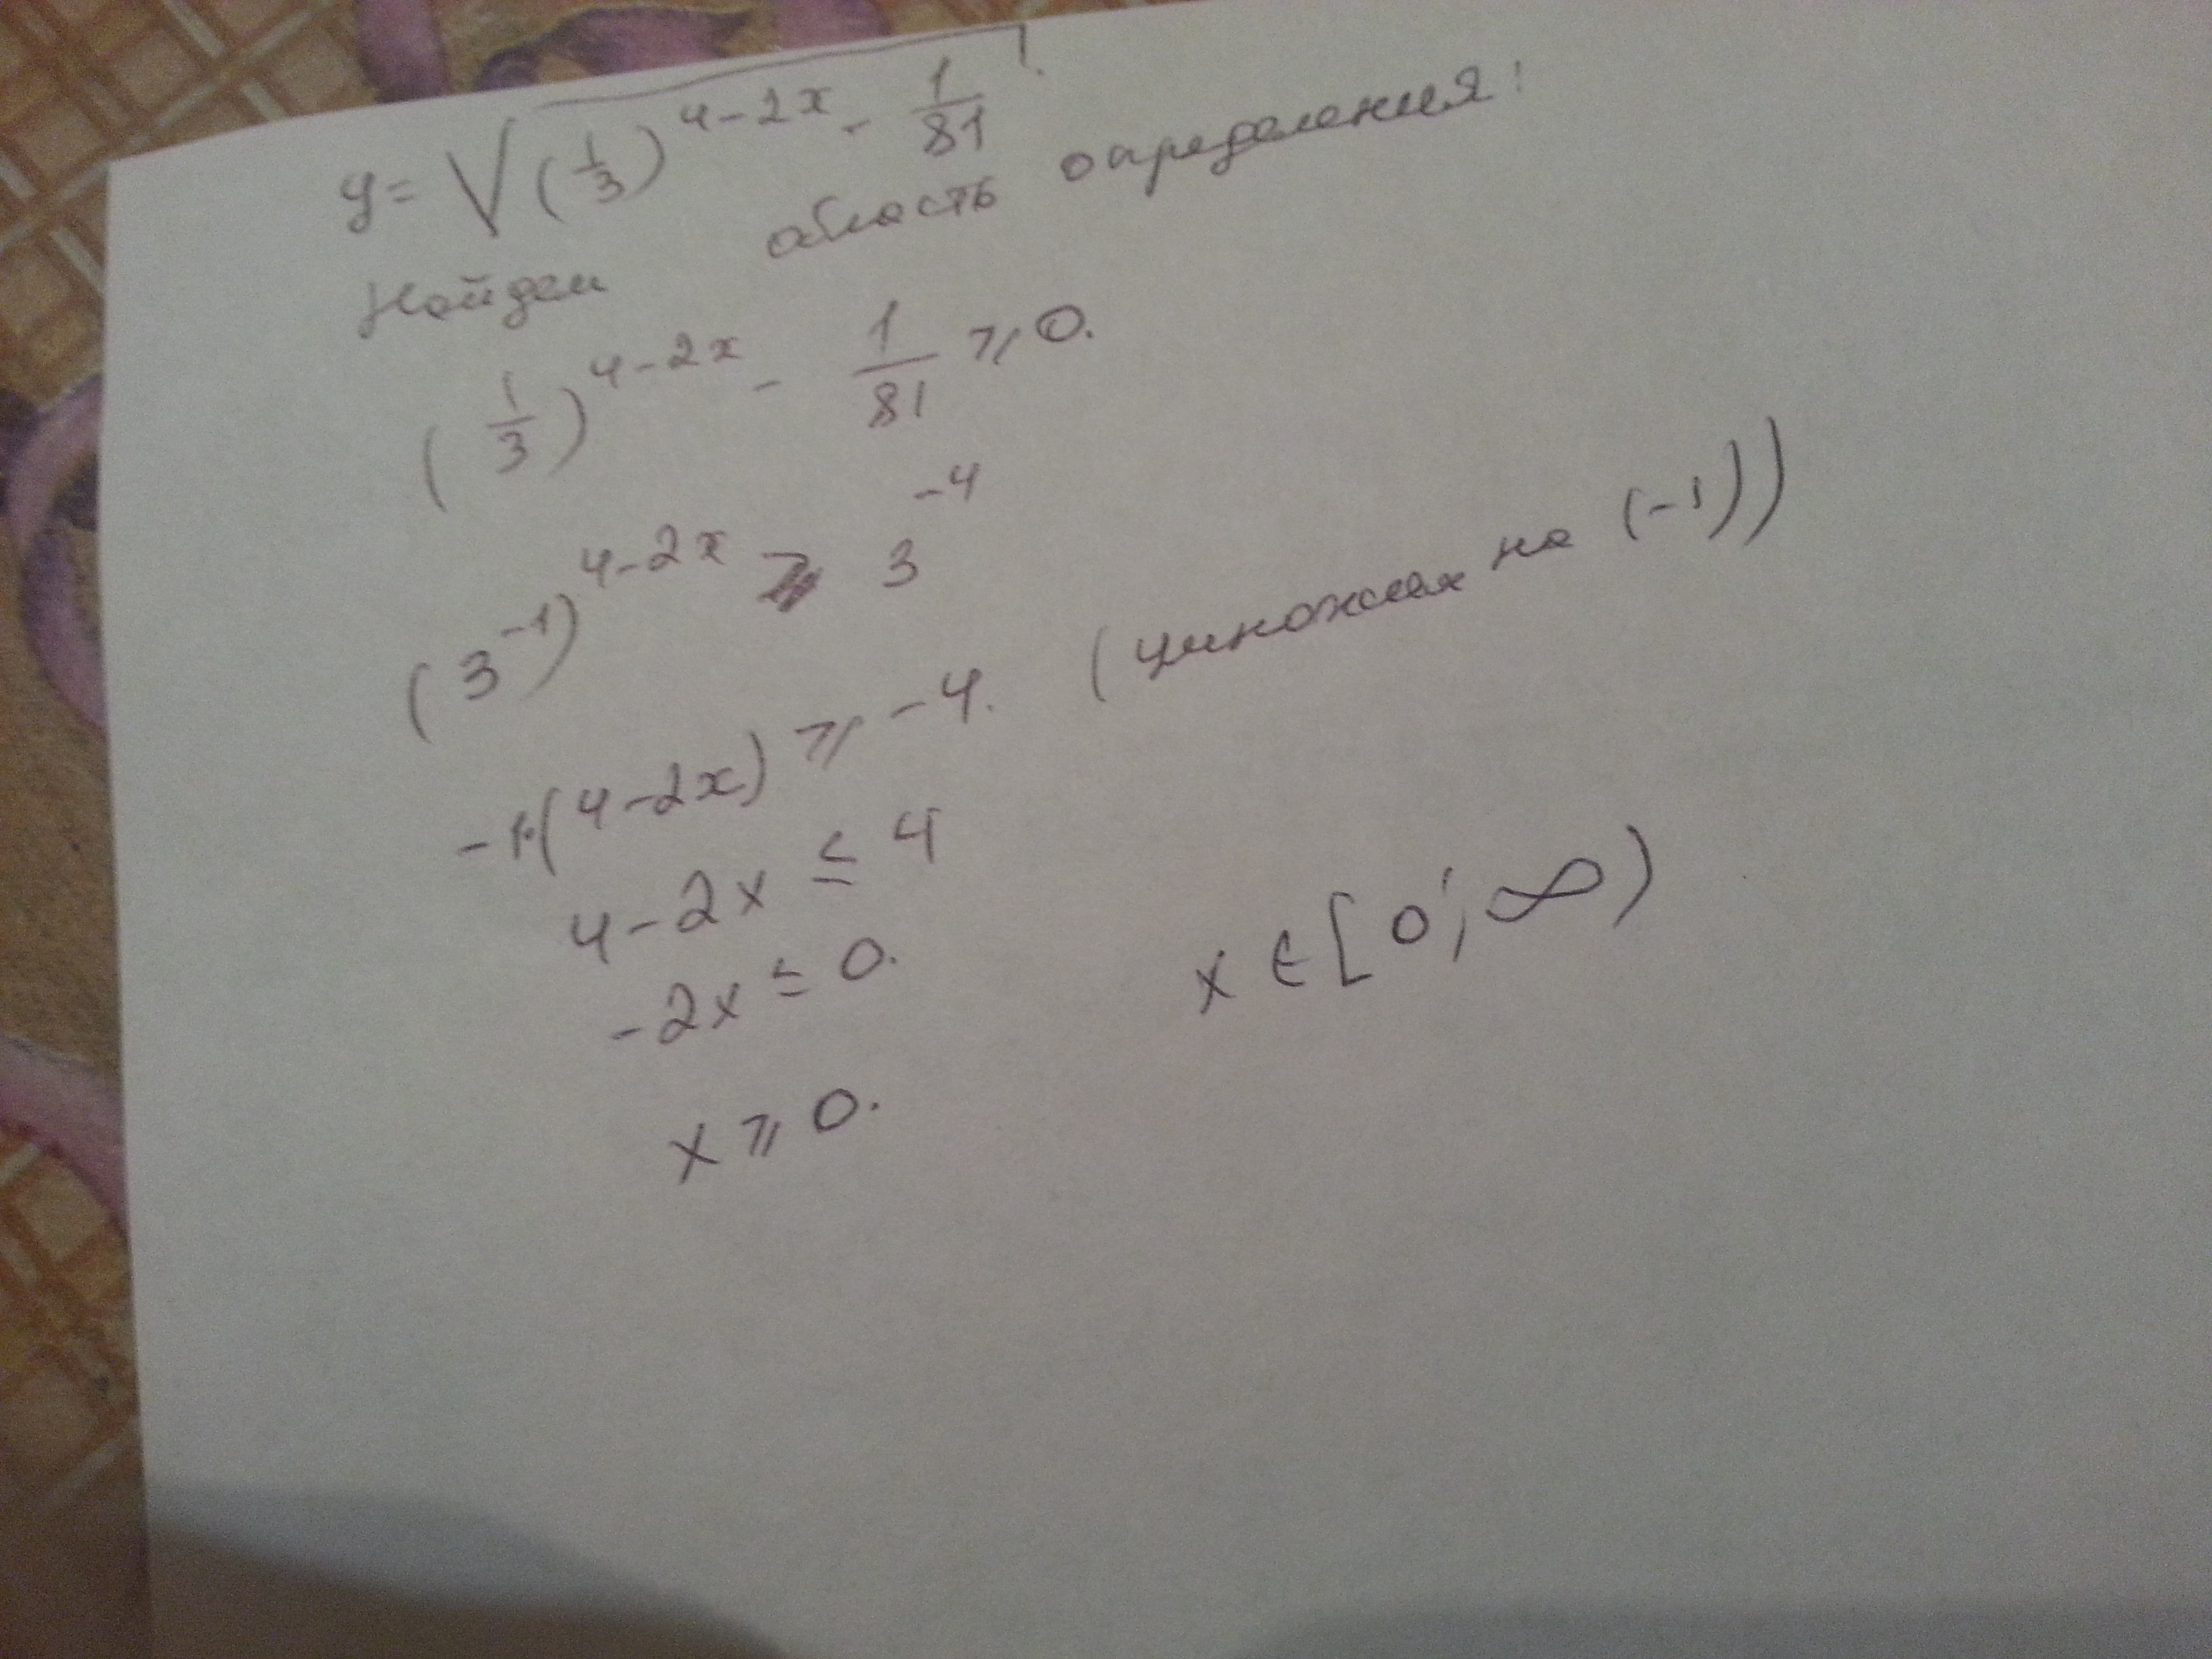 y = √((1/3)^(4-2x) - 1/81)
Найдем область определения:
(1/3)^(4-2x) - 1/81 ⩾ 0.
(3^(-1))^(4-2x) ⩾ 3^(-4)
-1·(4-2x) ⩾ -4. (умножим на (-1))
4-2x ≤ 4
-2x ≤ 0.
x ⩾ 0.
x ∈ [0; ∞)